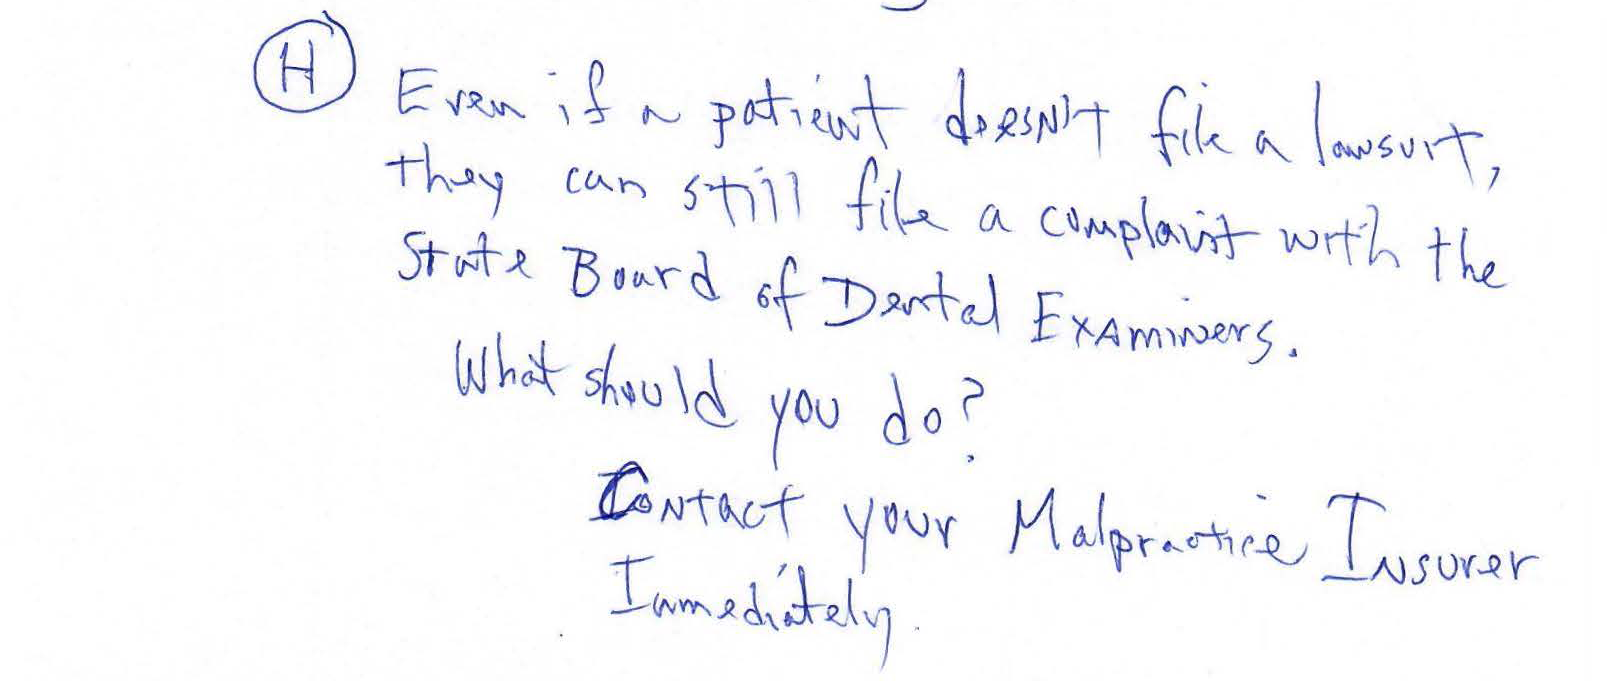 H Even if a patient doesn't file a lawsuit,
they can still file a complaint with the
State Board of Dental Examiners.
What should you do?
Contact your Malpractice Insurer
Immediately.